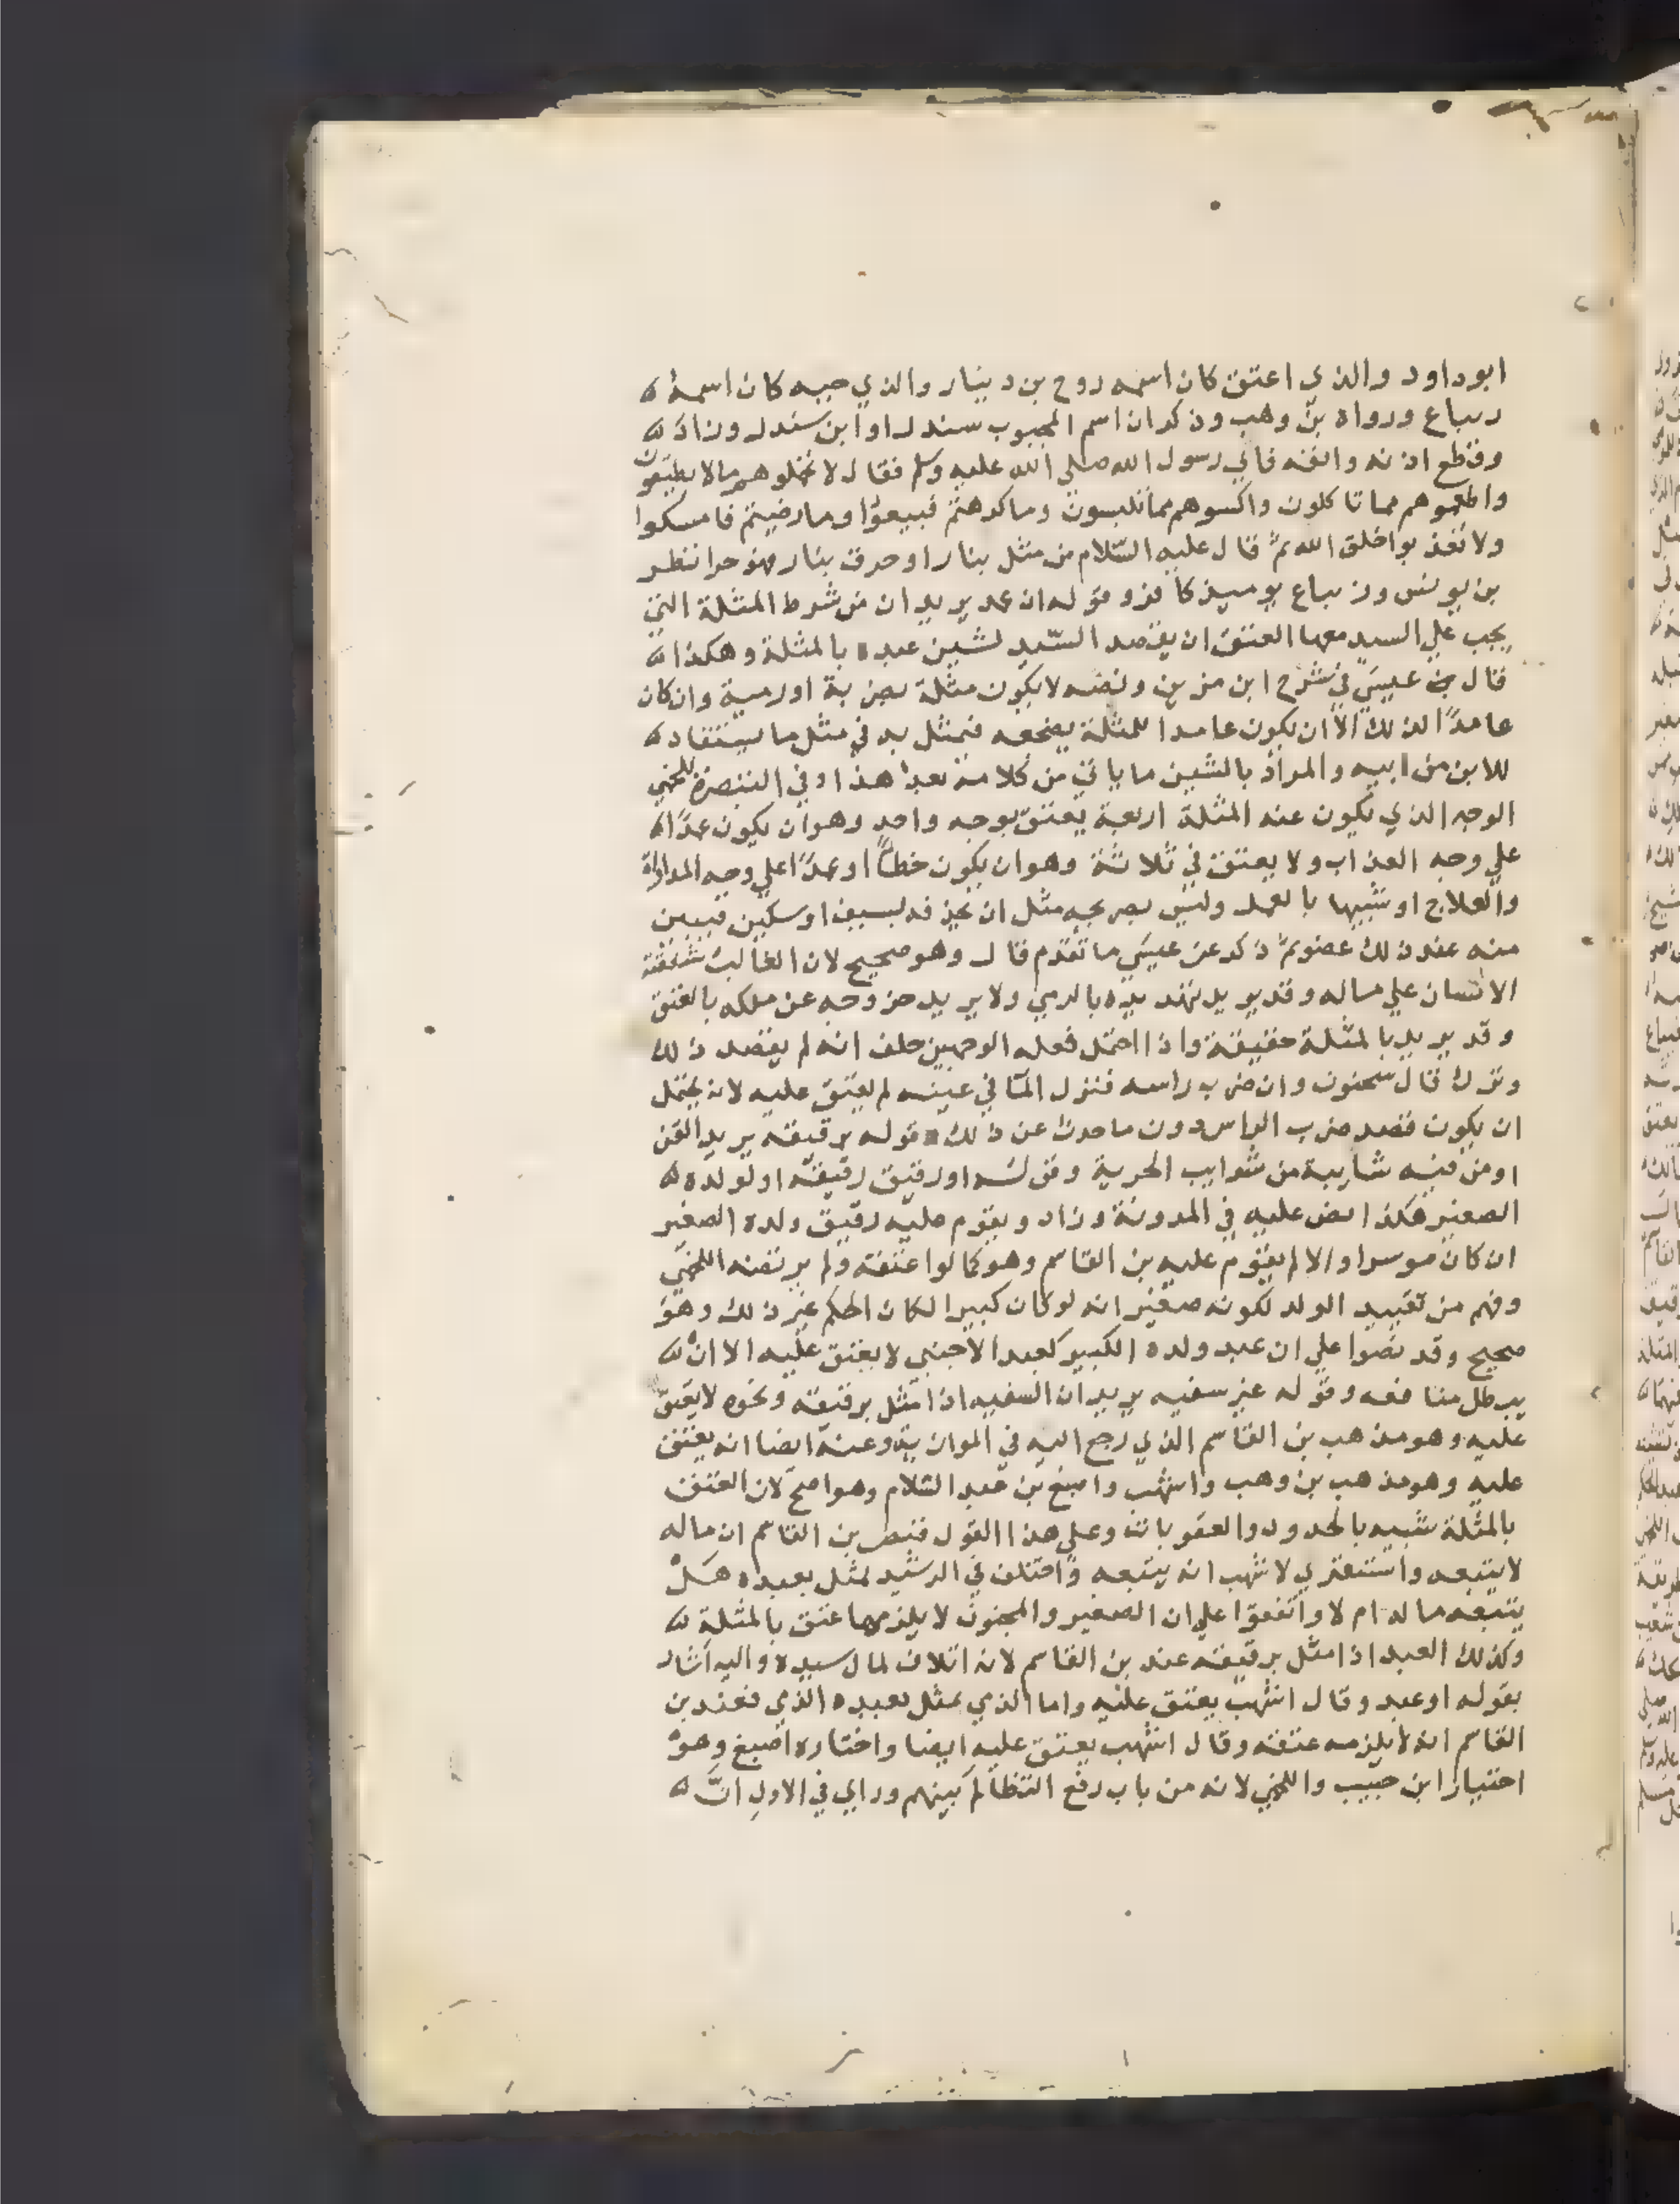 ابو داود والذي اعتق كان اسمه روح بن دينار والذي جبه كان اسمه
رنباع ورواه بن وهب وذكر ان اسم المجبوب سندر او ابن سندر وزاد
وقطع اذنه وانفه فاتي رسول الله صلي الله عليه وسلم فقال لا تحملوهم مالا يطيقون
واطعموهم مما تاكلون واكسوهم مما تلبسون وما كرهتم فبيعوا وما رضيتم فامسكوا
ولا تعذبوا خلق الله ثم قال عليه السلام من مثل بنار او حرق بنار فهو حر انظر
بن يونس وزنباع يوميذ كافر وقوله ان عمد يريد ان من شرط المثلة التي
يجب علي السيد معها العتق ان يقصد السيد لشين عبده بالمثلة وهكذا
قال عيسي في شرح ابن مزين ونصه لا يكون مثلة بضربة او رمية وان كان
عامدا لذلك الا ان يكون عامدا للمثلة يضجعه فيمثل به في مثل ما يستقاد
للابن من ابيه والمراد بالشين ما ياتي من كلامه بعد هذا وفي التبصرة للخمي
الوجه الذي تكون عنه المثلة اربعة يعتق بوجه واحد وهو ان يكون عمدا
علي وجه العذاب ولا يعتق في ثلاثة وهو ان يكون خطأ او عمدا علي وجه المداواة
والعلاج او شبيها بالعمد وليس بصريحه مثل ان يحذفه بسيف او سكين فيبين
منه عند ذلك عضو ثم ذكر عن عيسي ما تقدم قال وهو صحيح لان الغالب شفقة
الانسان علي ماله وقد يريد تهديده بالرمي ولا يريد خروجه عن ملكه بالعتق
وقد يريد بالمثلة حقيقة واذا احتمل فعله الوجهين حلف انه لم يقصد ذلك
وترك قال سحنون وان ضرب راسه فنزل المآ في عينيه لم يعتق عليه لانه يحتمل
ان يكون قصد ضرب الراس دون ما حدث عن ذلك قوله برقيقه يريد القن
او من فيه شايبة من شوايب الحرية وقوله او رقيق رقيقه او لولده
الصغير هكذا نص عليه في المدونة وزاد ويقوم عليه رقيق ولده الصغير
ان كان موسرا والا لم يقوم عليه بن القاسم وهو كما لو اعتقه ولم يرتضه اللخمي
وفهم من تقييد الولد لكونه صغيرا انه لو كان كبيرا لكان الحكم غير ذلك وهو
صحيح وقد نصوا علي ان عبد ولده الكبير كعبد الاجنبي لا يعتق عليه الا ان
يبطل منافعه وقوله غير سفيه يريد ان السفيه اذا مثل برقيقه ونحوه لا يعتق
عليه وهو مذهب بن القاسم الذي رجع اليه في الموازية وعنه ايضا انه يعتق
عليه وهو مذهب بن وهب واشهب واصبغ بن عبد السلام وهو اصح لان العتق
بالمثلة شبيه بالحدود والعقوبات وعلي هذا القول فنص بن القاسم ان ماله
لا يتبعه واستقري لاشهب انه يتبعه واختلف في الرشيد يمثل بعبده هل
يتبعه ماله ام لا واتفقوا علي ان الصغير والمجنون لا يلزمهما عتق بالمثلة
وكذلك العبد اذا مثل برقيقه عند بن القاسم لانه اتلاف لمال سيده واليه اشار
بقوله او عبد وقال اشهب يعتق عليه واما الذمي يمثل بعبده الذمي فعند بن
القاسم انه لا يلزمه عتقه وقال اشهب يعتق عليه ايضا واختاره اصبغ وهو
اختيار ابن حبيب واللخمي لانه من باب رفع التظالم بينهم وراي في الاول ان